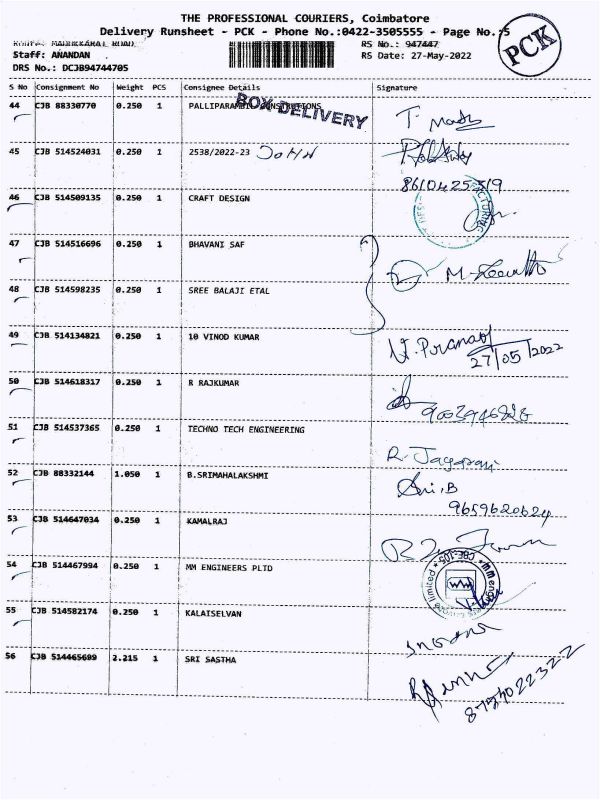 THE PROFESSIONAL COURIERS, Coimbatore
Delivery Runsheet - PCK - Phone No.:0422-3505555 - Page No.:5
PCK
RS No.: 947447
Staff: ANANDAN
RS Date: 27-May-2022
DRS No.: DCJB94744705
S No Consignment No Weight PCS Consignee Details Signature
44 CJB 88330770 0.250 1
BOX DELIVERY
45 CJB 514524031 0.250 1 2538/2022-23 JOHN
46 CJB 514509135 0.250 1 CRAFT DESIGN
47 CJB 514516696 0.250 1 BHAVANI SAF
48 CJB 514598235 0.250 1 SREE BALAJI ETAL
49 CJB 514134821 0.250 1 10 VINOD KUMAR V. Pranav
27/05/2022
50 CJB 514618317 0.250 1 R RAJKUMAR
51 CJB 514537365 0.250 1 TECHNO TECH ENGINEERING
52 CJB 88332144 1.050 1 B.SRIMAHALAKSHMI Sri.B
9659620624
53 CJB 514647034 0.250 1 KAMALRAJ
54 CJB 514467994 0.250 1 MM ENGINEERS PLTD
55 CJB 514582174 0.250 1 KALAISELVAN
56 CJB 514465699 2.215 1 SRI SASTHA